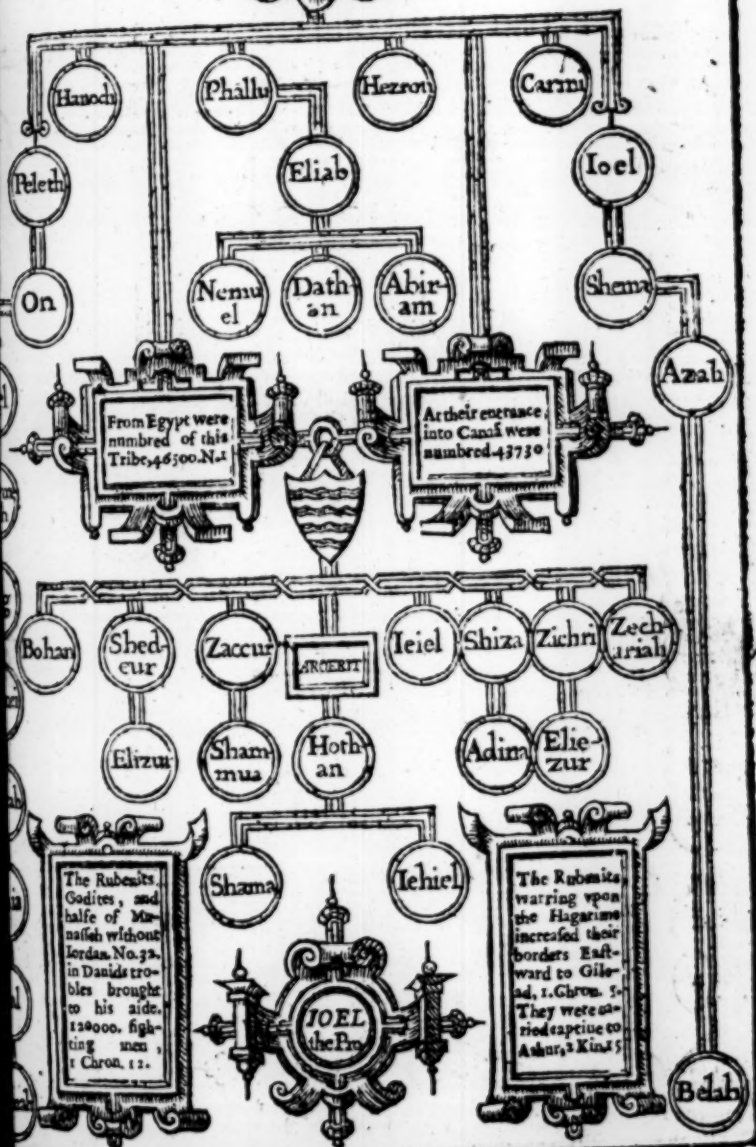 Hanoch
Phallu
Hezron
Carmi
Peleth
Eliab
Ioel
On
Nemu
el
Dath-
an
Abir-
am
Shema
Azah
From Egypt were
numbred of this
Tribe, 46500. N. 1
At their entrance,
into Canaã were
numbred. 43730
Bohan
Shed-
eur
Zaccur
Ieiel
Shiza
Zichri
Zech-
ariah
Elizur
Sham-
mua
Hoth-
an
Adina
Elie-
zur
Shama
Iehiel
The Rubenits,
Gadites, and
halfe of Ma-
nasseh without
Iordan. No. 32.
in Dauids tro-
bles brought
to his aide.
120000. figh-
ting men,
1 Chron. 12.
IOEL
the Pro.
The Rubenits
warring vpon
the Hagarims
increased their
borders East-
ward to Gile-
ad, 1. Chron. 5.
They were ca-
ried captiue to
Ashur, 2 Kin. 15
Belah